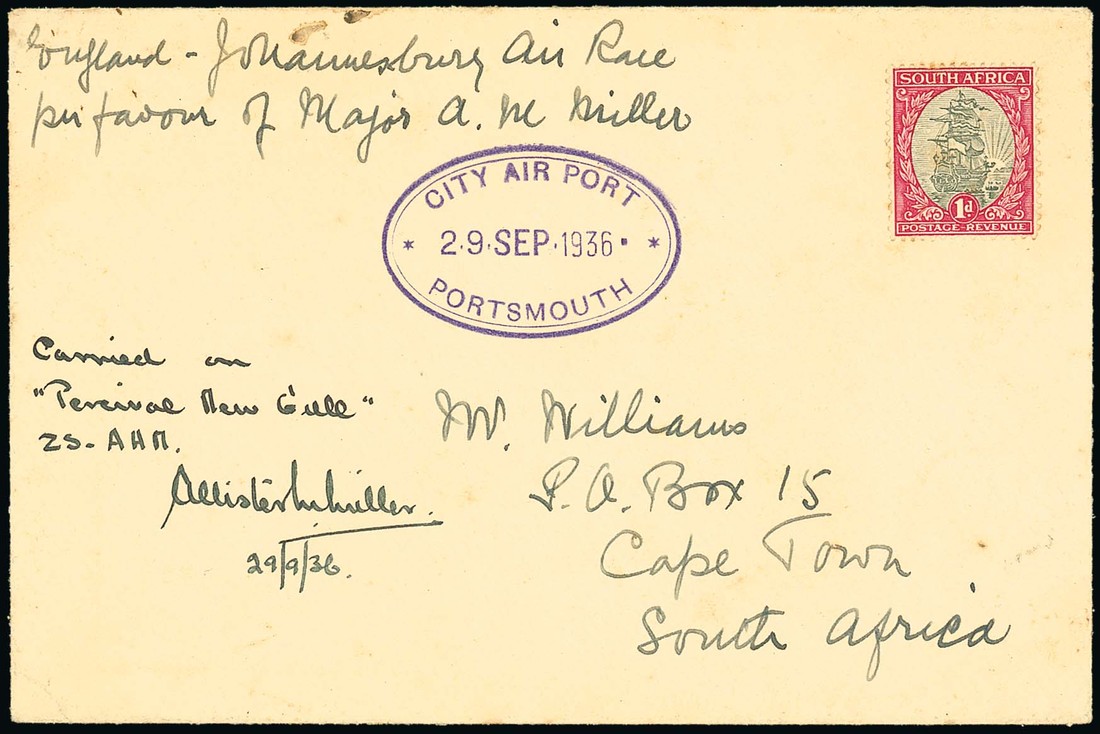 England - Johannesburg Air Race
per favour of Major A. M Miller
SOUTH AFRICA
1d
POSTAGE-REVENUE
CITY AIR PORT
* 2·9·SEP·1936· *
PORTSMOUTH
Carried on
"Percival Mew Gull"
ZS-AHM.
Allister M. Miller.
29/9/36.
W. Williams
P.O. Box 15
Cape Town
South Africa